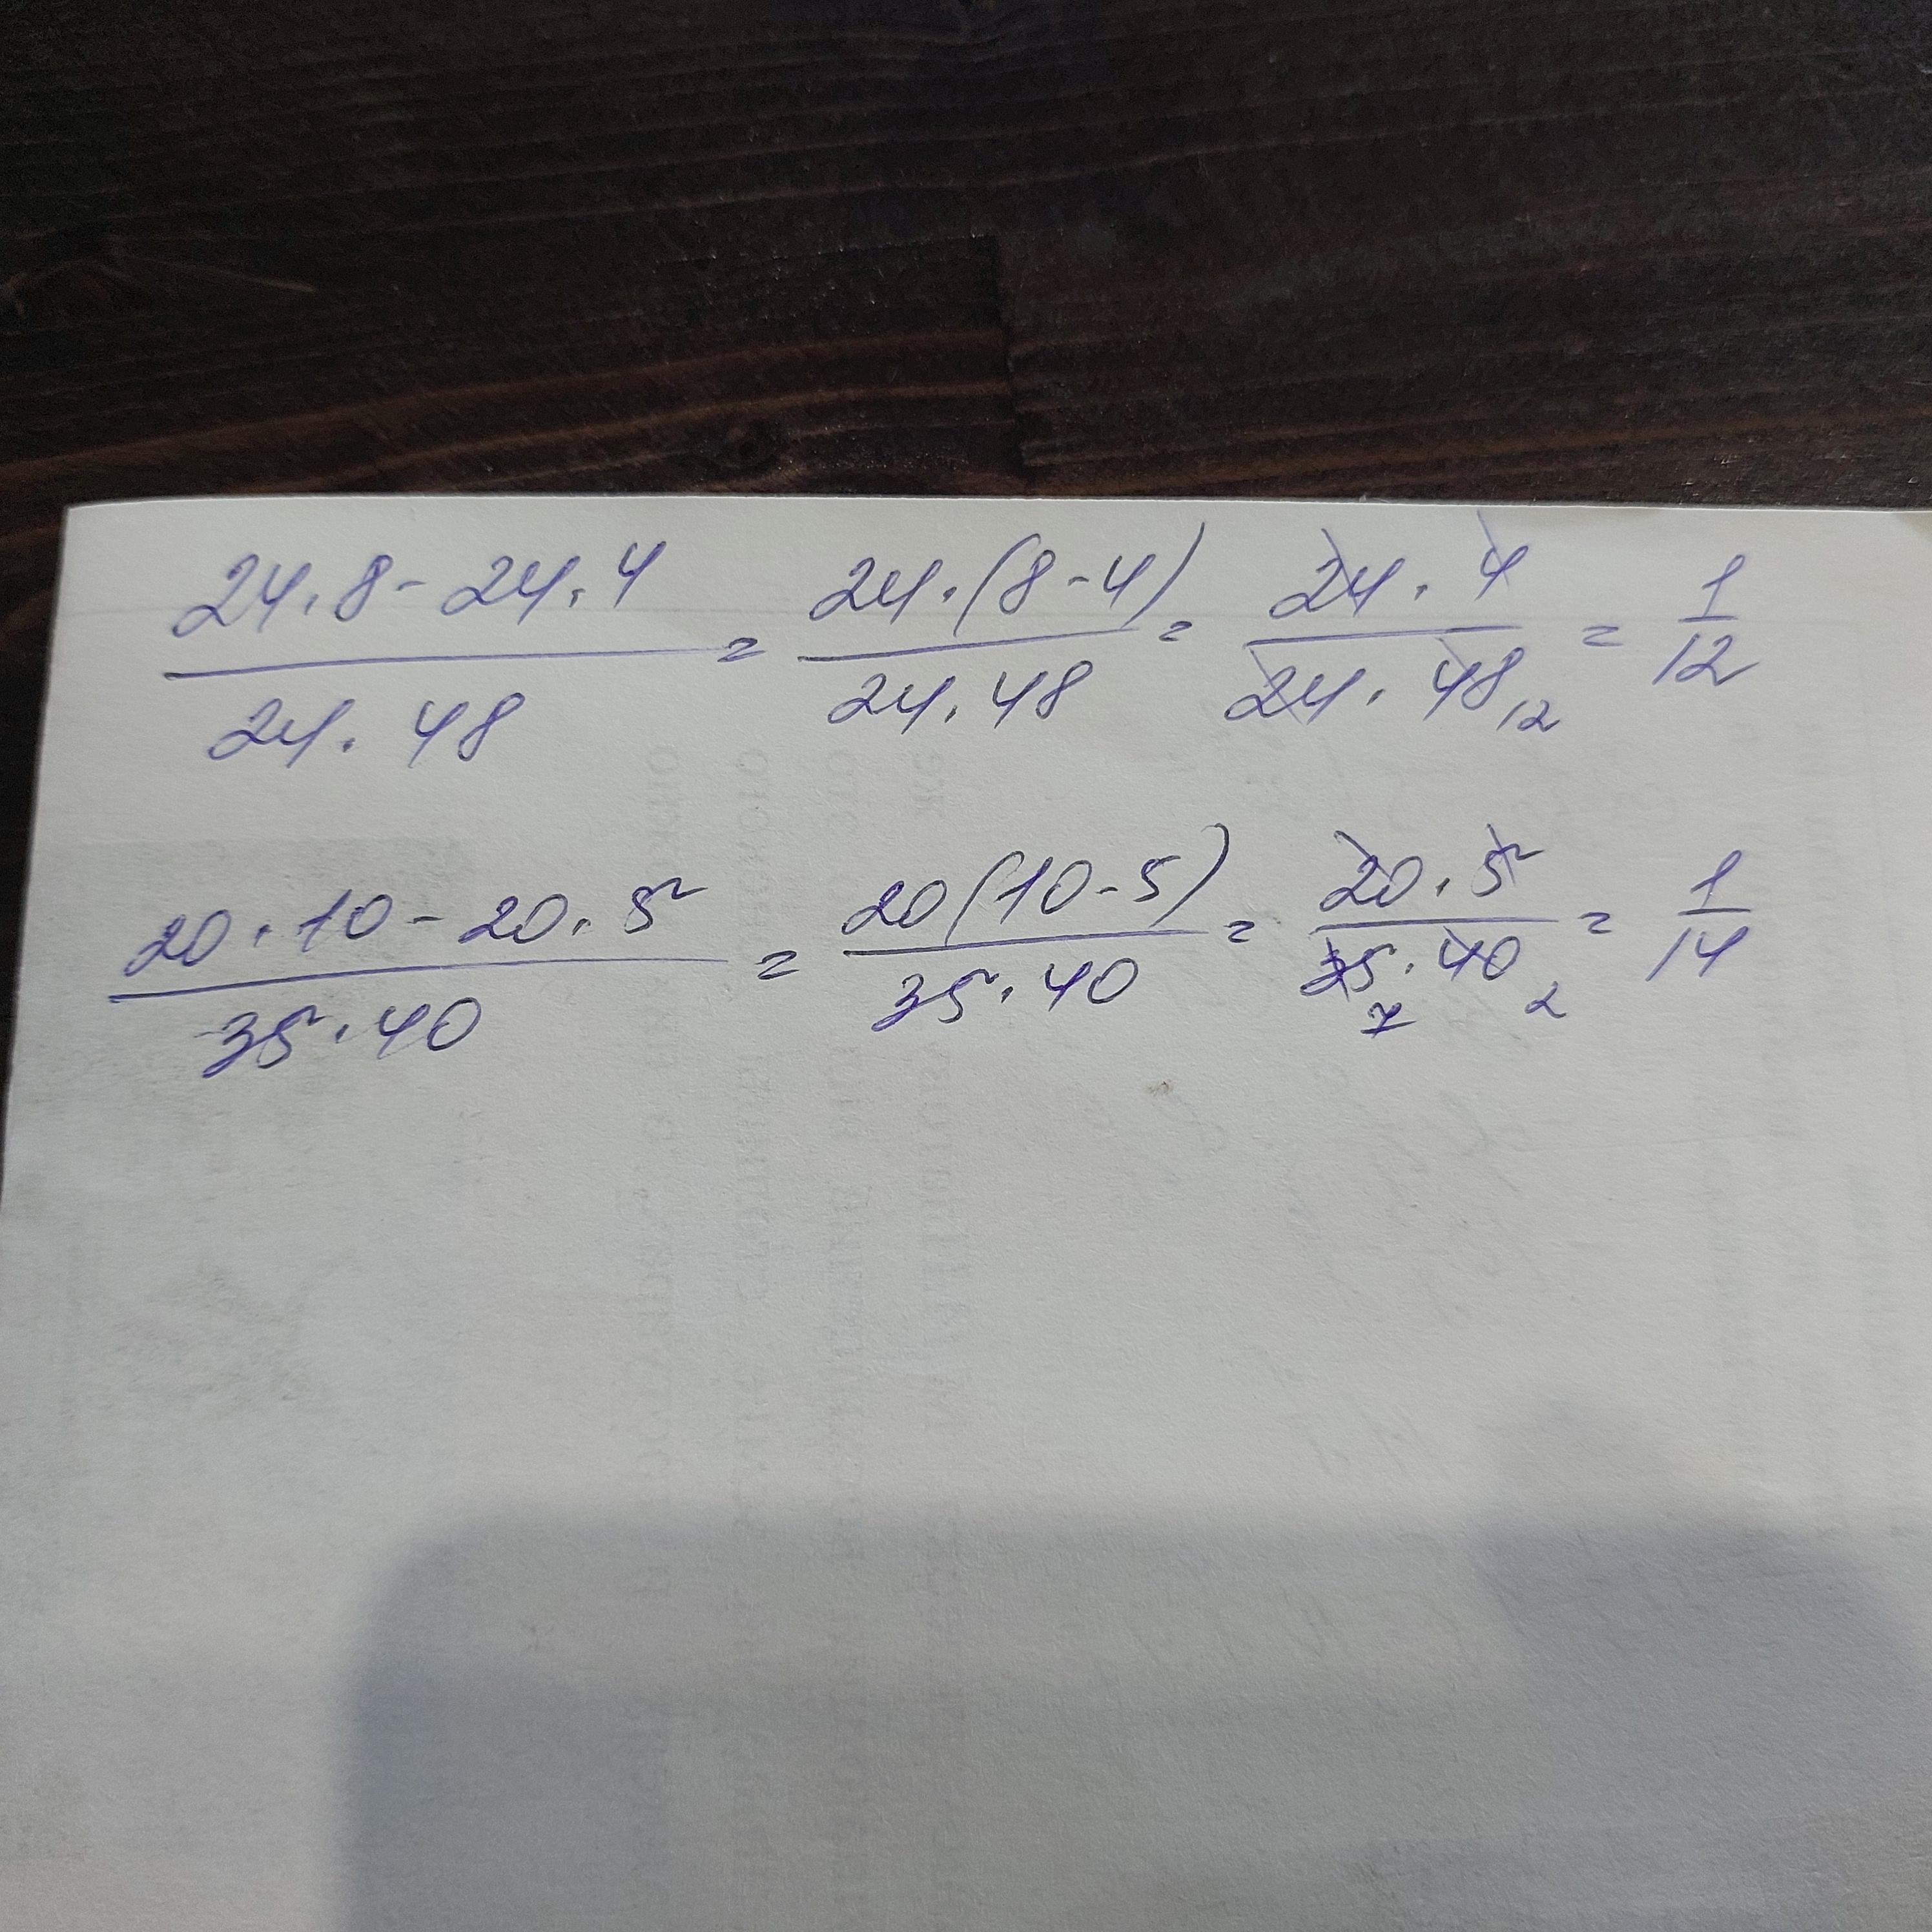 (24·8-24·4)/(24·48) = (24·(8-4))/(24·48) = (24·4)/(24·48) 12 = 1/12
(20·10-20·5)/(35·40) = (20(10-5))/(35·40) = (20·5)/(35·40) 7 2 = 1/14